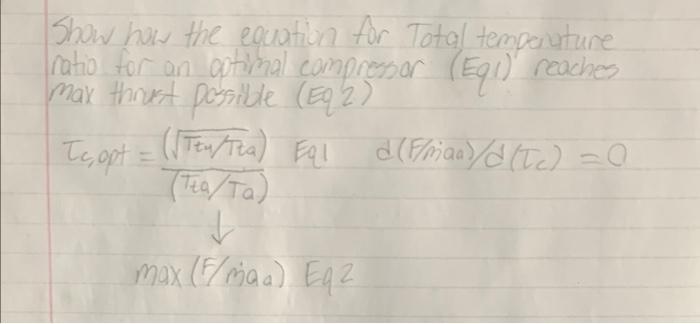 Show how the equation for Total temperature
ratio for an optimal compressor (Eq1) reaches
max thrust possible (Eq 2)
τc,opt = (√Tt4/Tta) / (Tta/Ta) Eq1 d(F/ṁaa)/d(τc) = 0
↓
max (F/ṁaa) Eq2